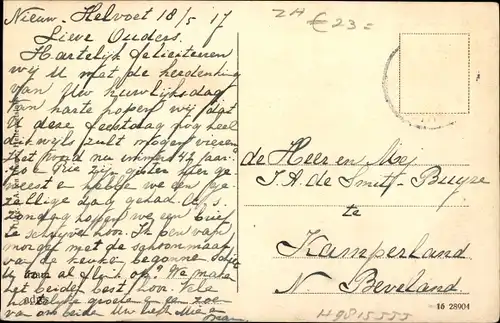 Nieuw-Helvoet 18/5 '17
Lieve Ouders.
Hartelijk feliciteeren
wij U met de herdenking
van Uw huwlijksdag
van harte hopen wij dat
U deze feestdag nog heel
dikwijls zult mogen vieren
Het word nu immers 42 jaar.
zijn gisteren hier ge
weest en hebbe we een ge
zellige dag gehad. A.s.
zondag hopen we een brief
te schrijve hoor. Ik ben van
morge met de schoonmaak
van de keuke begonne
al op? We make
het beide best hoor. Vele
hartelijke groeten en een zoe
van ons beide Uw liefh.
ZH € 23=
de Heer en Mej
J. A. de Smit-Buyze
te
Kamperland
N. Beveland
16 28904
H9815555